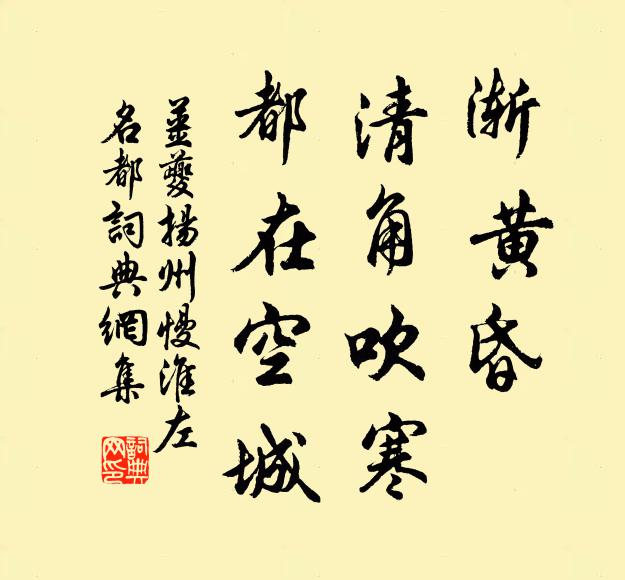 渐黄昏
清角吹寒
都在空城
姜夔揚州慢淮左
名都詞典網集
詞典网印